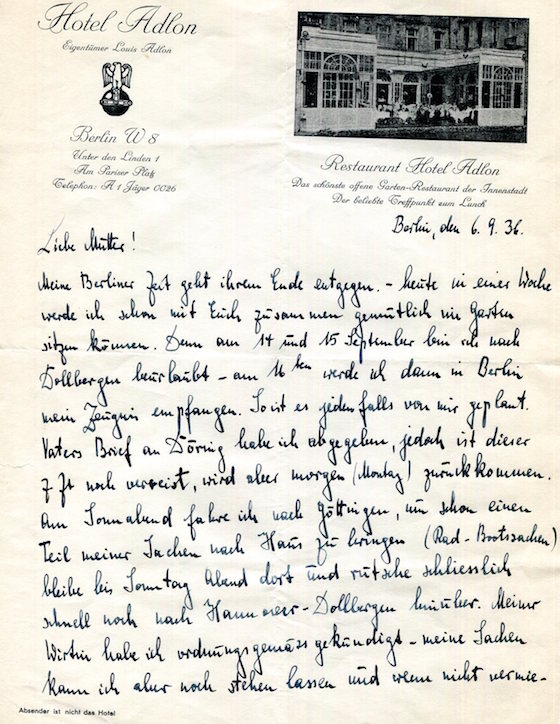 Hotel Adlon
Eigentümer Louis Adlon
Berlin W 8
Unter den Linden 1
Am Pariser Platz
Telephon: A 1 Jäger 0026
Restaurant Hotel Adlon
Das schönste offene Garten-Restaurant der Innenstadt
Der beliebte Treffpunkt zum Lunch
Berlin, den 6. 9. 36.
Liebe Mutter!
Meine Berliner Zeit geht ihrem Ende entgegen. – heute in einer Woche
werde ich schon mit Euch zusammen gemütlich im Garten
sitzen können. Denn am 14 und 15 September bin ich nach
Dollbergen beurlaubt – am 16ten werde ich dann in Berlin
mein Zeugnis empfangen. So ist es jedenfalls von mir geplant.
Vaters Brief an Döring habe ich abgegeben, jedoch ist dieser
z Zt noch verreist, wird aber morgen (Montag) zurückkommen.
Am Sonnabend fahre ich nach Göttingen, um schon einen
Teil meiner Sachen nach Haus zu bringen (Rad-Bootssachen)
bleibe bis Sonntag Abend dort und rutsche schliesslich
schnell noch nach Hannover-Dollbergen hinüber. Meiner
Wirtin habe ich ordnungsgemäss gekündigt – meine Sachen
kann ich aber noch stehen lassen und wenn nicht vermie-
Absender ist nicht das Hotel